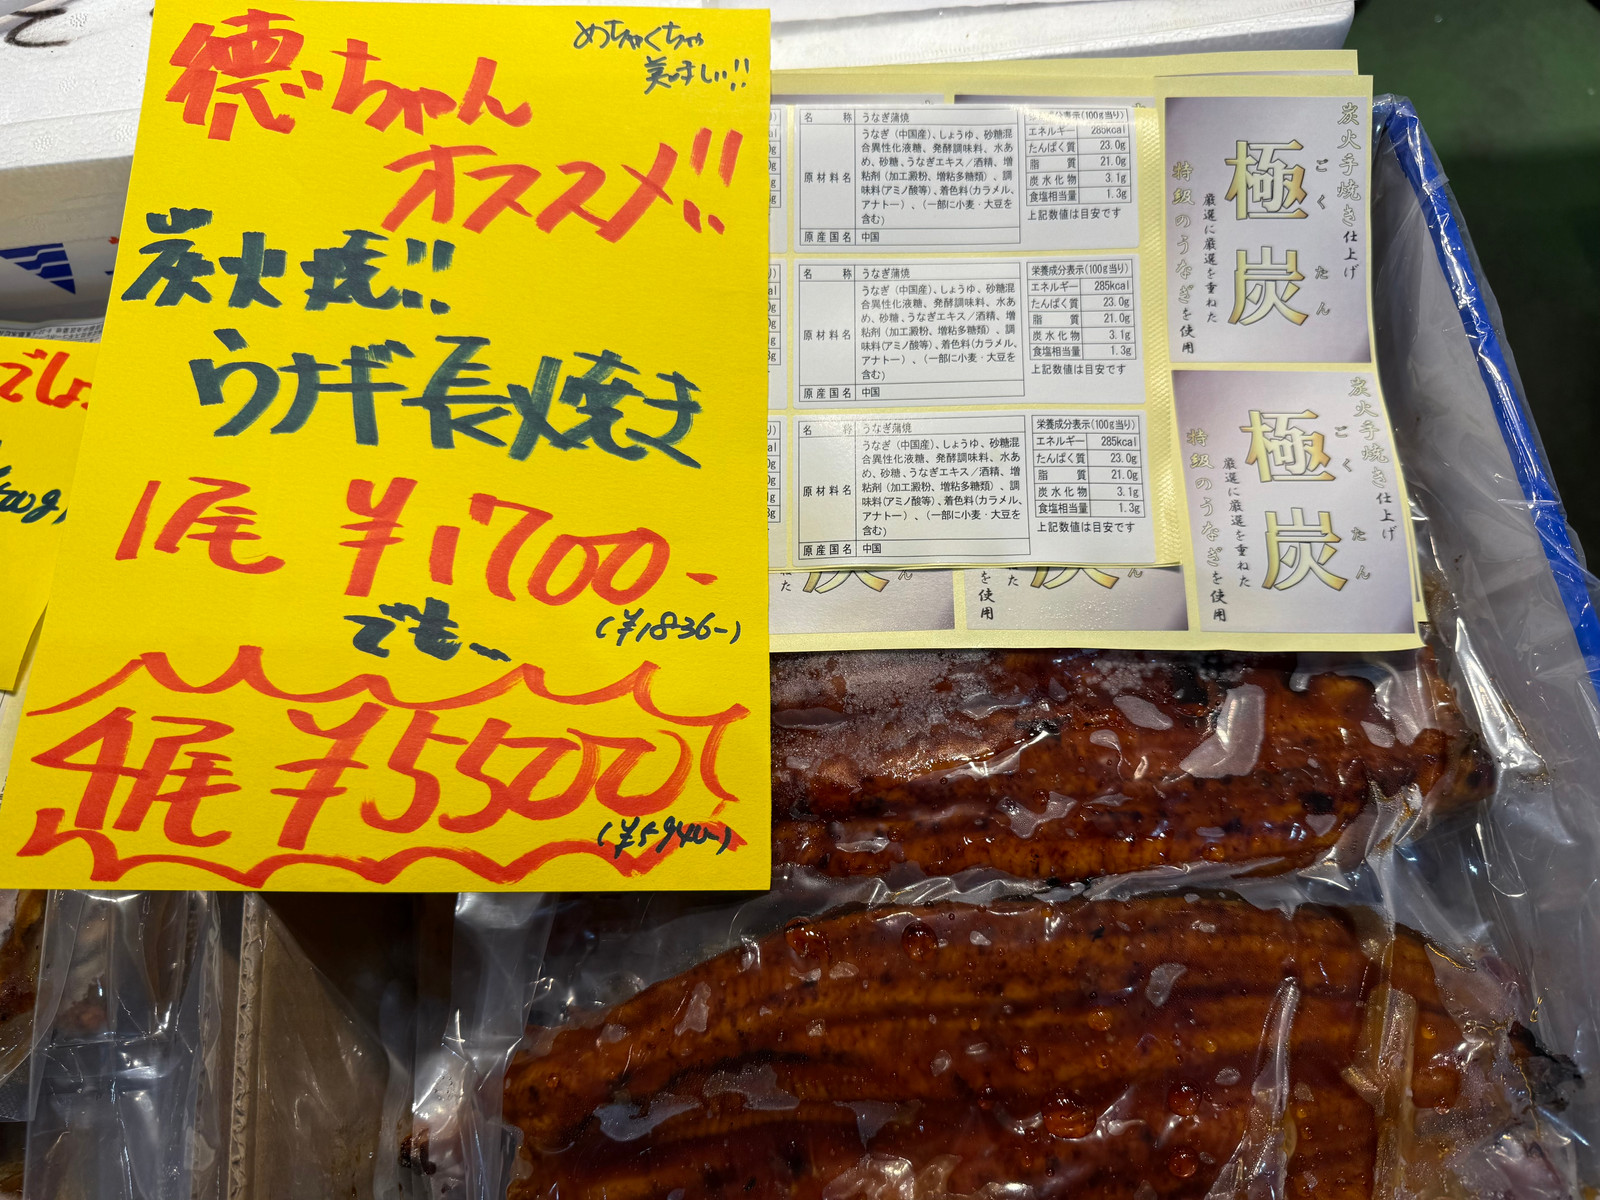 めちゃくちゃ
美味しい!!
徳ちゃん
オススメ!!
炭火焼!!
ウナギ長焼き
1尾 ¥1700-
(¥1836-)
でもー
4尾 ¥5500
(¥5940-)
でしょ
名 称 うなぎ蒲焼
原材料名 うなぎ（中国産）、しょうゆ、砂糖混
合異性化液糖、発酵調味料、水あ
め、砂糖、うなぎエキス／酒精、増
粘剤（加工澱粉、増粘多糖類）、調
味料(アミノ酸等)、着色料(カラメル、
アナトー）、（一部に小麦・大豆を
含む)
原産国名 中国
栄養成分表示(100g当り)
エネルギー 285kcal
たんぱく質 23.0g
脂 質 21.0g
炭水化物 3.1g
食塩相当量 1.3g
上記数値は目安です
名 称 うなぎ蒲焼
原材料名 うなぎ（中国産）、しょうゆ、砂糖混
合異性化液糖、発酵調味料、水あ
め、砂糖、うなぎエキス／酒精、増
粘剤（加工澱粉、増粘多糖類）、調
味料(アミノ酸等)、着色料(カラメル、
アナトー）、（一部に小麦・大豆を
含む)
原産国名 中国
栄養成分表示(100g当り)
エネルギー 285kcal
たんぱく質 23.0g
脂 質 21.0g
炭水化物 3.1g
食塩相当量 1.3g
上記数値は目安です
名 称 うなぎ蒲焼
原材料名 うなぎ（中国産）、しょうゆ、砂糖混
合異性化液糖、発酵調味料、水あ
め、砂糖、うなぎエキス／酒精、増
粘剤（加工澱粉、増粘多糖類）、調
味料(アミノ酸等)、着色料(カラメル、
アナトー）、（一部に小麦・大豆を
含む)
原産国名 中国
栄養成分表示(100g当り)
エネルギー 285kcal
たんぱく質 23.0g
脂 質 21.0g
炭水化物 3.1g
食塩相当量 1.3g
上記数値は目安です
炭火手焼き仕上げ
ごくたん
極炭
厳選に厳選を重ねた
特級のうなぎを使用
炭火手焼き仕上げ
ごくたん
極炭
厳選に厳選を重ねた
特級のうなぎを使用